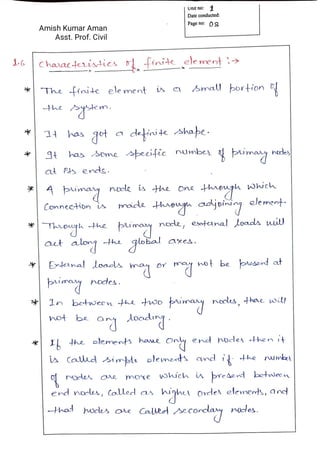 Unit no: 1
Date conducted:
Page no: 08
Amish Kumar Aman
Asst. Prof. Civil
1.6 Characteristics of finite element :→
* The finite element is a small portion of
the system.
* It has got a definite shape.
* It has some specific number of primary nodes
at its ends.
* A primary node is the one through which
connection is made through adjoining element.
* Through the primary node, external loads will
act along the global axes.
* External loads may or may not be present at
primary nodes.
* In between the two primary nodes, there will
not be any loading.
* If the elements have only end nodes then it
is called simple elements and if the number
of nodes are more which is present between
end nodes, called as higher order elements, and
that nodes are called secondary nodes.